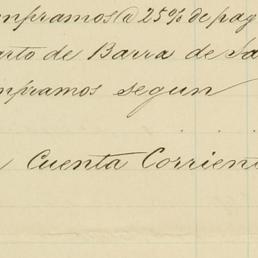 mpramos @ 25% de pag
arto de Barra de Sa
mpramos segun
Cuenta Corrien